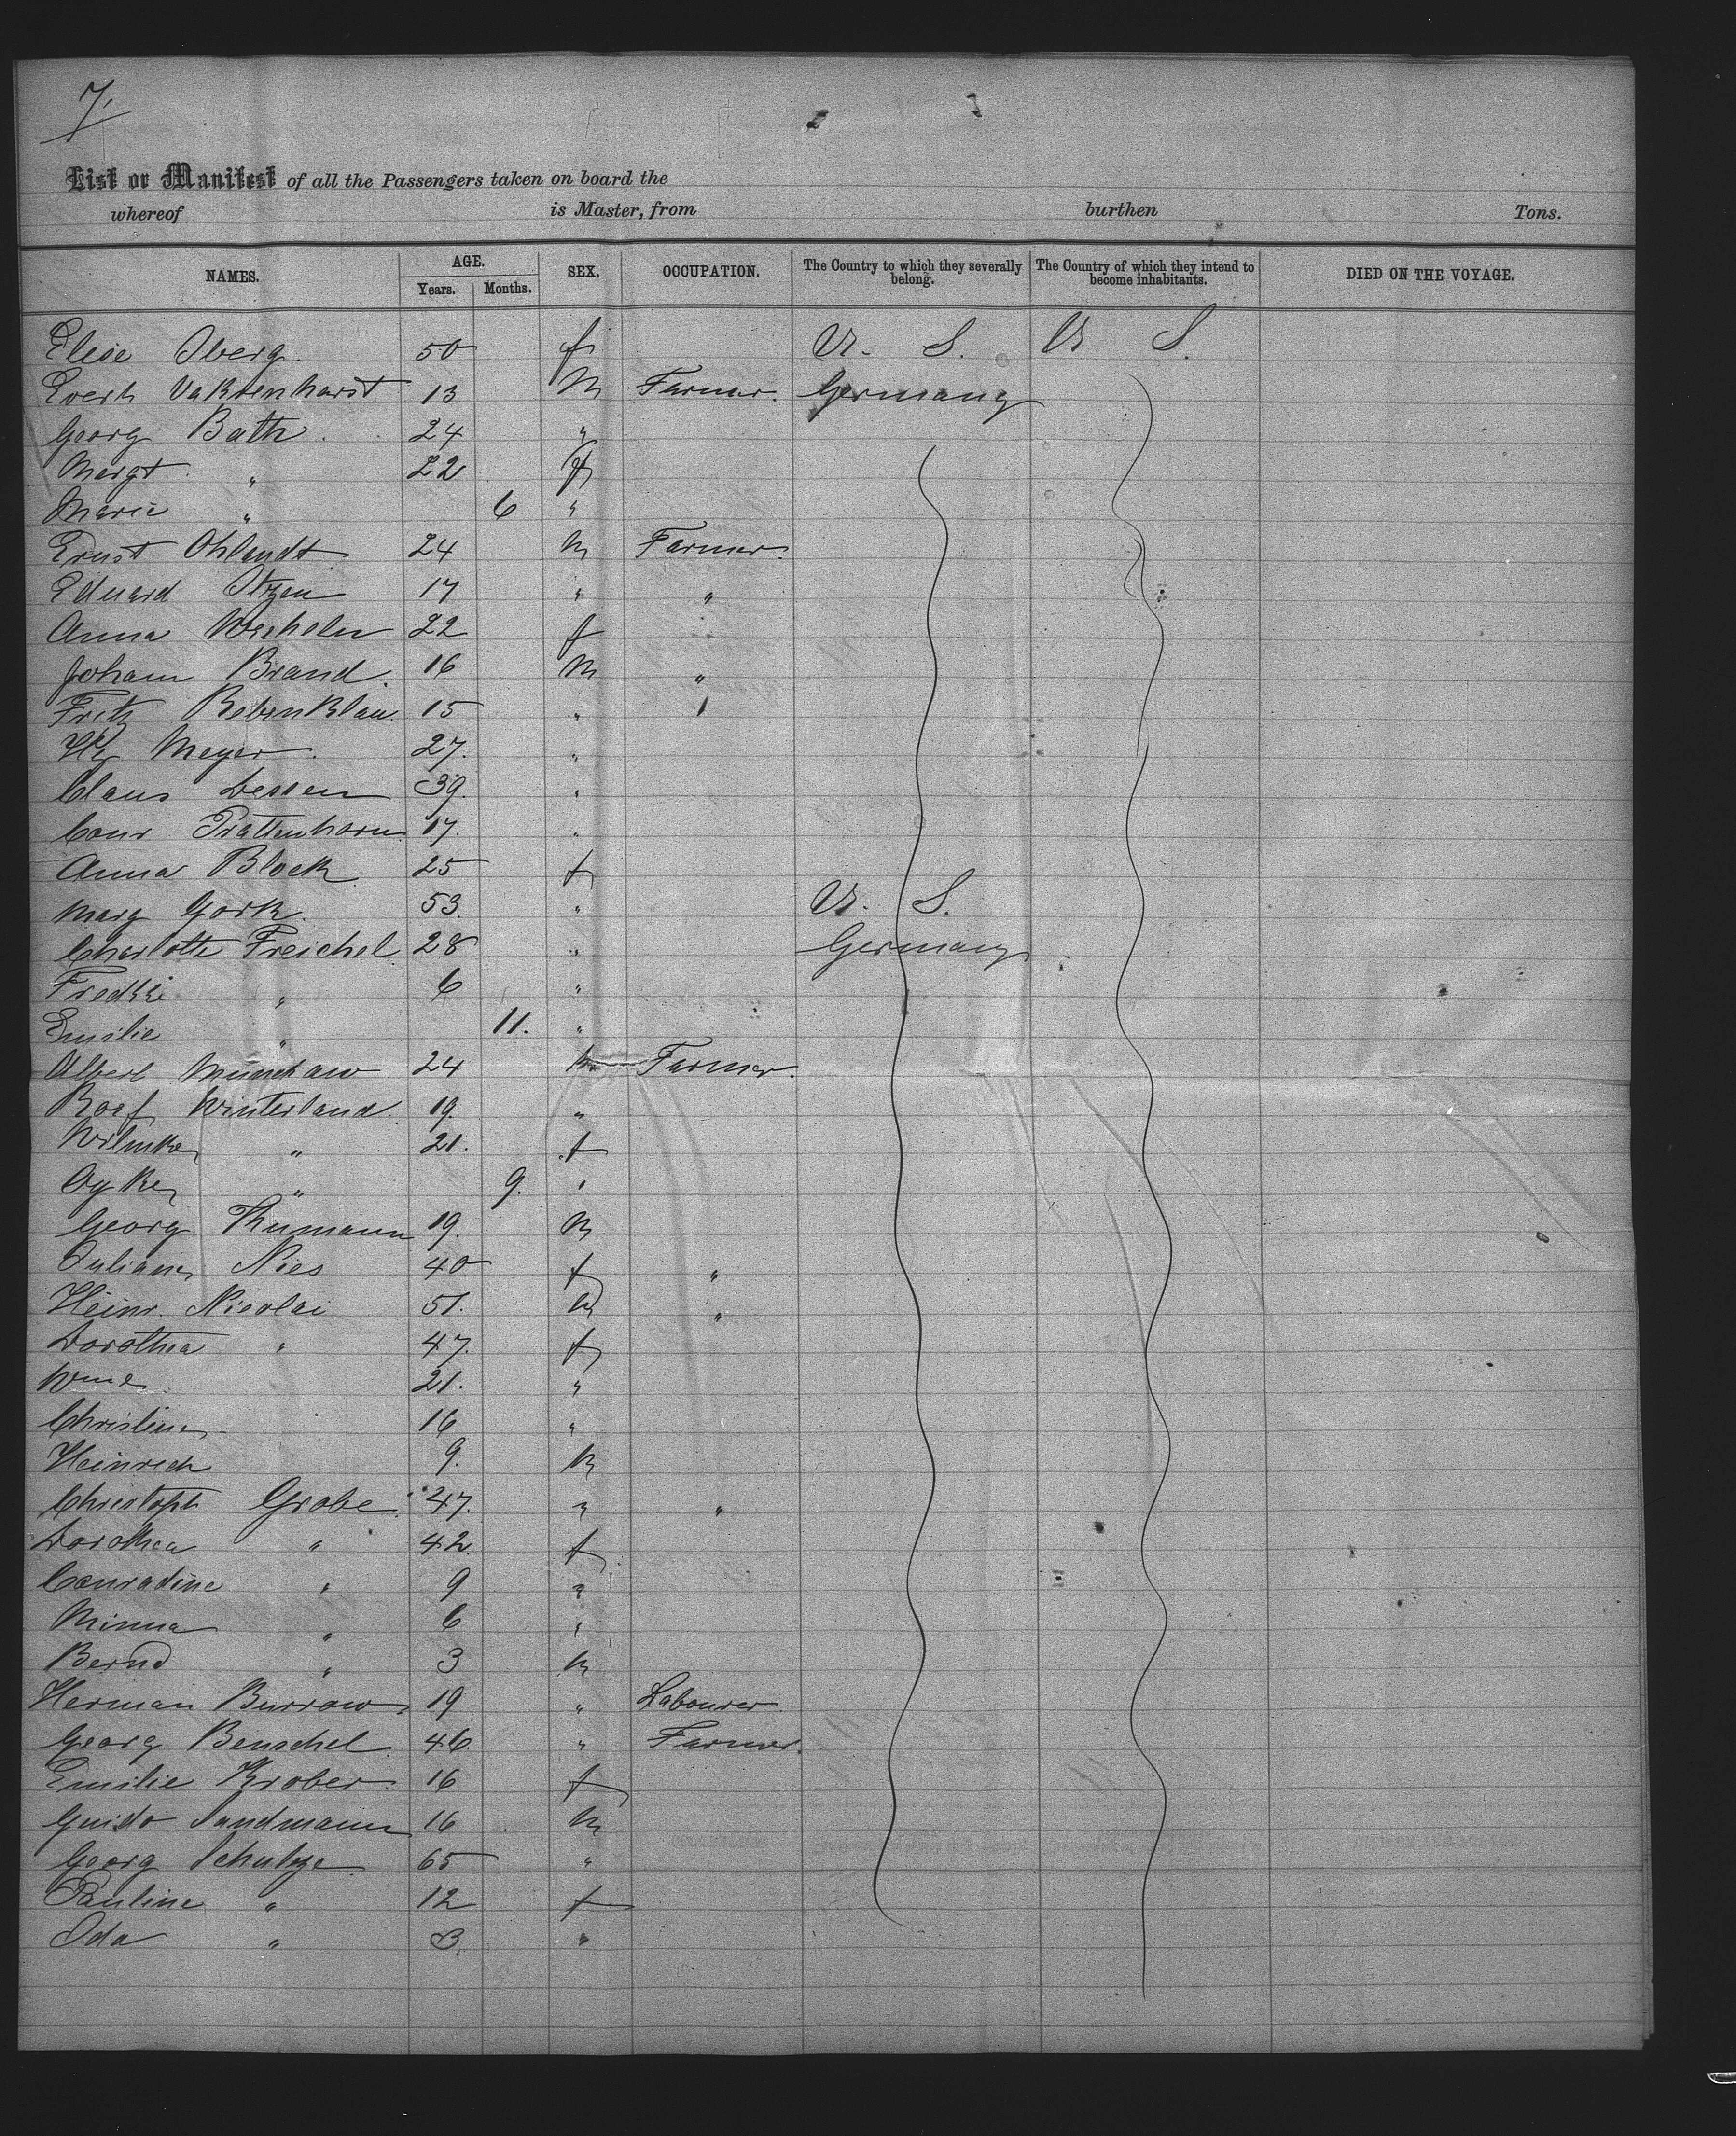 7,
List or Manifest of all the Passengers taken on board the
whereof is Master, from burthen Tons.
NAMES. AGE. Years. Months. SEX. OCCUPATION. The Country to which they severally belong. The Country of which they intend to become inhabitants. DIED ON THE VOYAGE.
Elise Oberg. 50 f U. S. U S.
Everh 13 M Farmer. Germany
Georg Bath. 24 "
Margt " 22 f
Marie " 6 "
Ernst Ohlandt 24 M Farmer.
Eduard Itzen 17 " "
Anna 22 f
Johann Brand. 16 M "
Fritz Rebenklau. 15 " "
Hy Meyer. 27. "
Claus Dessen 39. "
Conr Prattenhorn 17. "
Anna Block 25 f
Marg Gork. 53. " U. S.
Charlotte Treichel 28 " Germany
" 6 "
Emilie " 11. "
Albert 24 M Farmer.
Roef Winterland 19. "
Wilmke " 21. f
Ayke " 9. "
Georg Thumann 19. M
Juliane Nies 40 f "
Heinr. Nicolai 51. M "
Dorothea " 47. f
Wme 21. "
Christine 16 "
Heinrich 9. M
Christoph Grobe. 47. " "
Dorothea " 42. f
Conradine " 9 "
Minna " 6 "
Bernd " 3 M
Herman Burrow 19 " Labourer.
Georg Benschel 46. " Farmer.
Emilie Krober 16 f
Guido Sandmann 16 M
Georg Schulze 65 "
Pauline " 12 f
Oda " 3. "